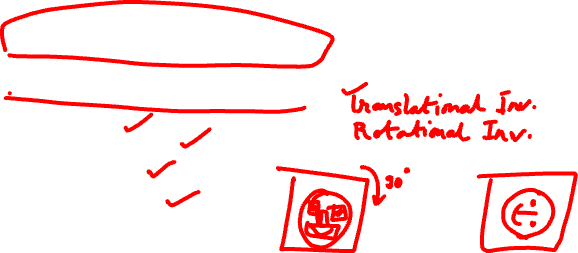 Translational Inv.
Rotational Inv.
90°